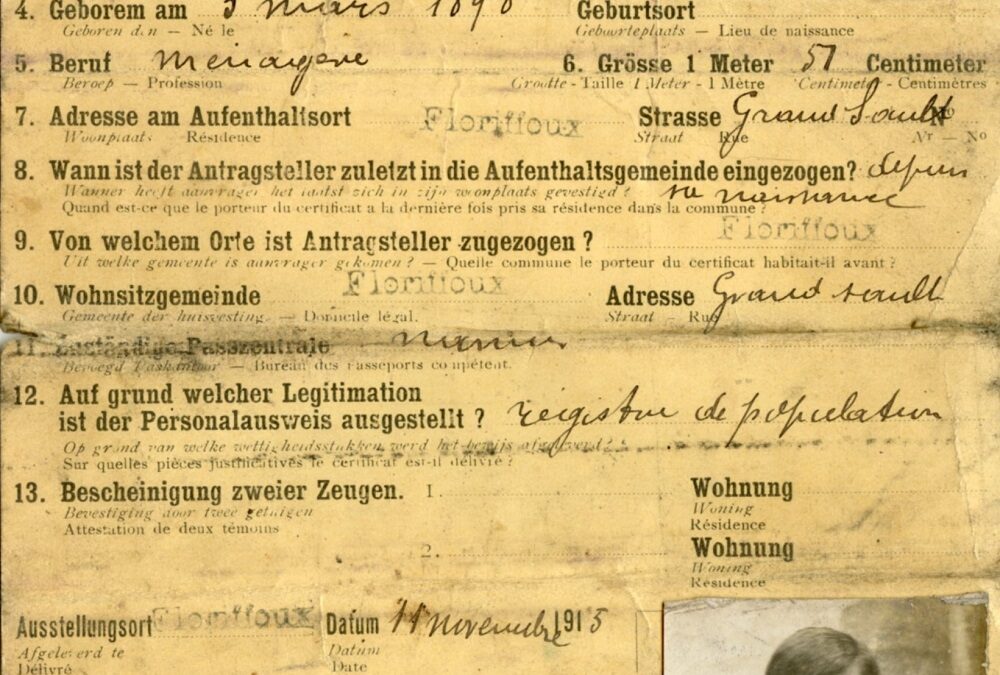 4. Geborem am 5 mars 1890 Geburtsort
Geboren d.n — Né le Geboorteplaats — Lieu de naissance
5. Beruf menagère 6. Grösse 1 Meter 57 Centimeter
Beroep — Profession Grootte - Taille 1 Meter - 1 Mètre Centimeter - Centimètres
7. Adresse am Aufenthaltsort Floriffoux Strasse Grand Sault
Woonplaats Résidence Straat Rue Nr — No
8. Wann ist der Antragsteller zuletzt in die Aufenthaltsgemeinde eingezogen? depuis
Wanneer heeft aanvrager het laatst zich in zijn woonplaats gevestigd? sa naissance
Quand est-ce que le porteur du certificat a la dernière fois pris sa résidence dans la commune?
9. Von welchem Orte ist Antragsteller zugezogen? Floriffoux
Uit welke gemeente is aanvrager gekomen? — Quelle commune le porteur du certificat habitait-il avant?
10. Wohnsitzgemeinde Floriffoux Adresse Grand sault
Gemeente der huisvesting. — Domicile légal. Straat — Rue
11. Zuständige Passzentrale namur
Bevoegd Paskantoor — Bureau des Passeports compétent.
12. Auf grund welcher Legitimation
ist der Personalausweis ausgestellt? registre de population
Op grond van welke wettigheidsstukken werd het bewijs afgeleverd?
Sur quelles pièces justificatives le certificat est-il délivré?
13. Bescheinigung zweier Zeugen. 1. Wohnung
Bevestiging door twee getuigen Woning
Attestation de deux témoins Résidence
2. Wohnung
Woning
Résidence
Ausstellungsort Floriffoux Datum 11 novembre 1915
Afgeleverd te Datum
Délivré Date